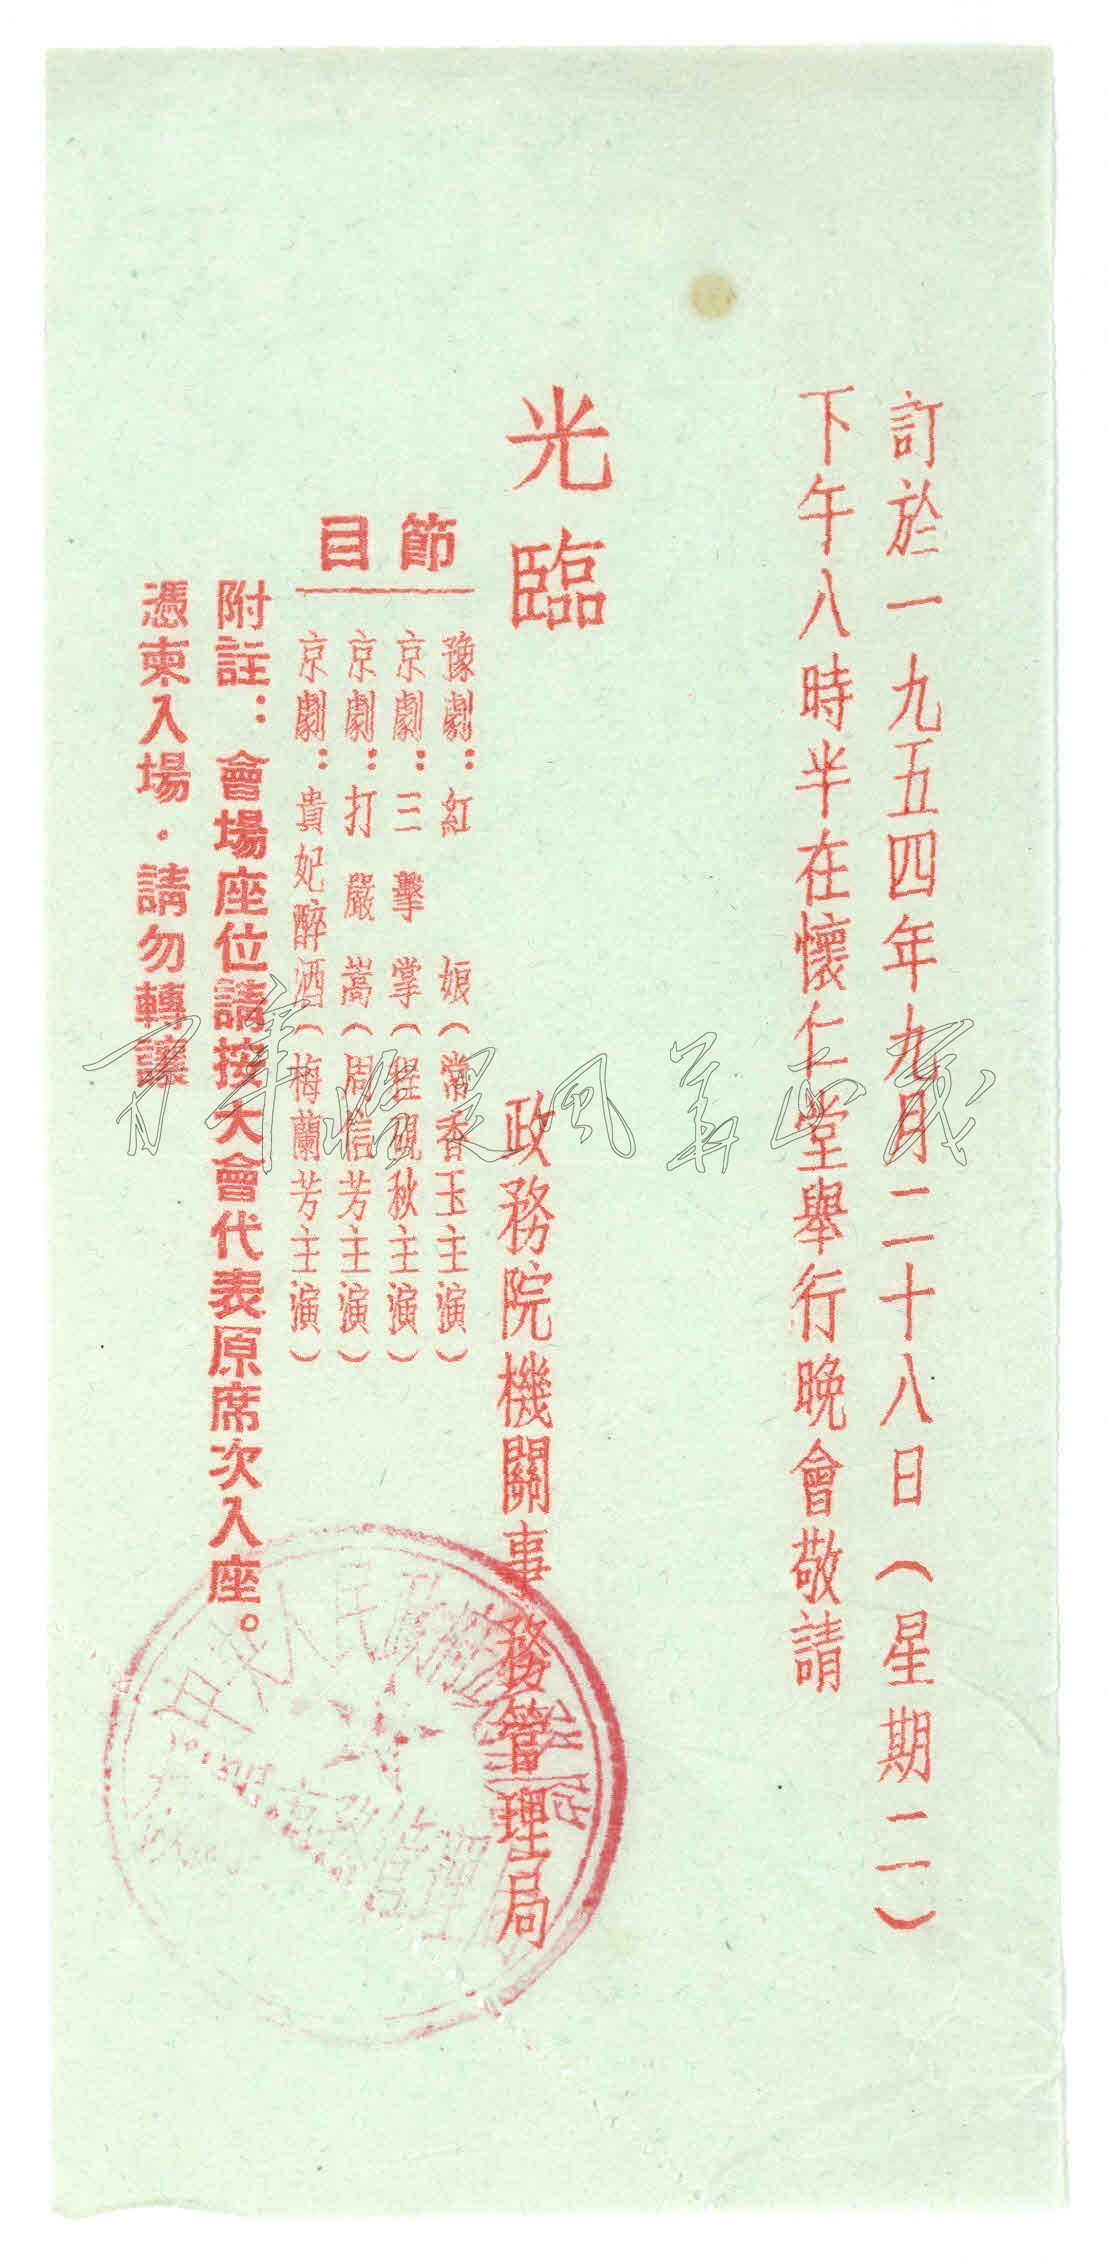 訂於一九五四年九月二十八日（星期二）
下午八時半在懷仁堂舉行晚會敬請
光臨
政務院機關事務管理局
節目
豫劇：紅娘（常香玉主演）
京劇：三擊掌（程硯秋主演）
京劇：打嚴嵩（周信芳主演）
京劇：貴妃醉酒（梅蘭芳主演）
附註：會場座位請按大會代表原席次入座。
憑柬入場．請勿轉讓
中央人民政府